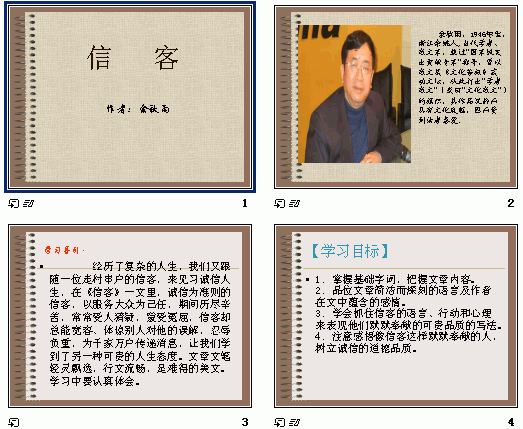 信 客
作者：余秋雨
1
余秋雨，1946年生，
浙江余姚人，当代学者、
散文家，
2
学习导引：
经历了复杂的人生，我们又跟
随一位走村串户的信客，来见习诚信人
生，在《信客》一文里，诚信为准则的
信客，以服务大众为己任，期间历尽辛
苦，常常受人猜疑，蒙受冤屈，信客却
总能宽容、体谅别人对他的误解，忍辱
负重，为千家万户传递消息，让我们学
到了另一种可贵的人生态度。文章文笔
轻灵飘逸，行文流畅，是难得的美文。
学习中要认真体会。
3
【学习目标】
1．掌握基础字词，把握文章内容。
2．品位文章简洁而深刻的语言及作者
在文中蕴含的感情。
3．学会抓住信客的语言、行动和心理
来表现他们默默奉献的可贵品质的写法。
4．注意感悟像信客这样默默奉献的人，
树立诚信的道德品质。
4